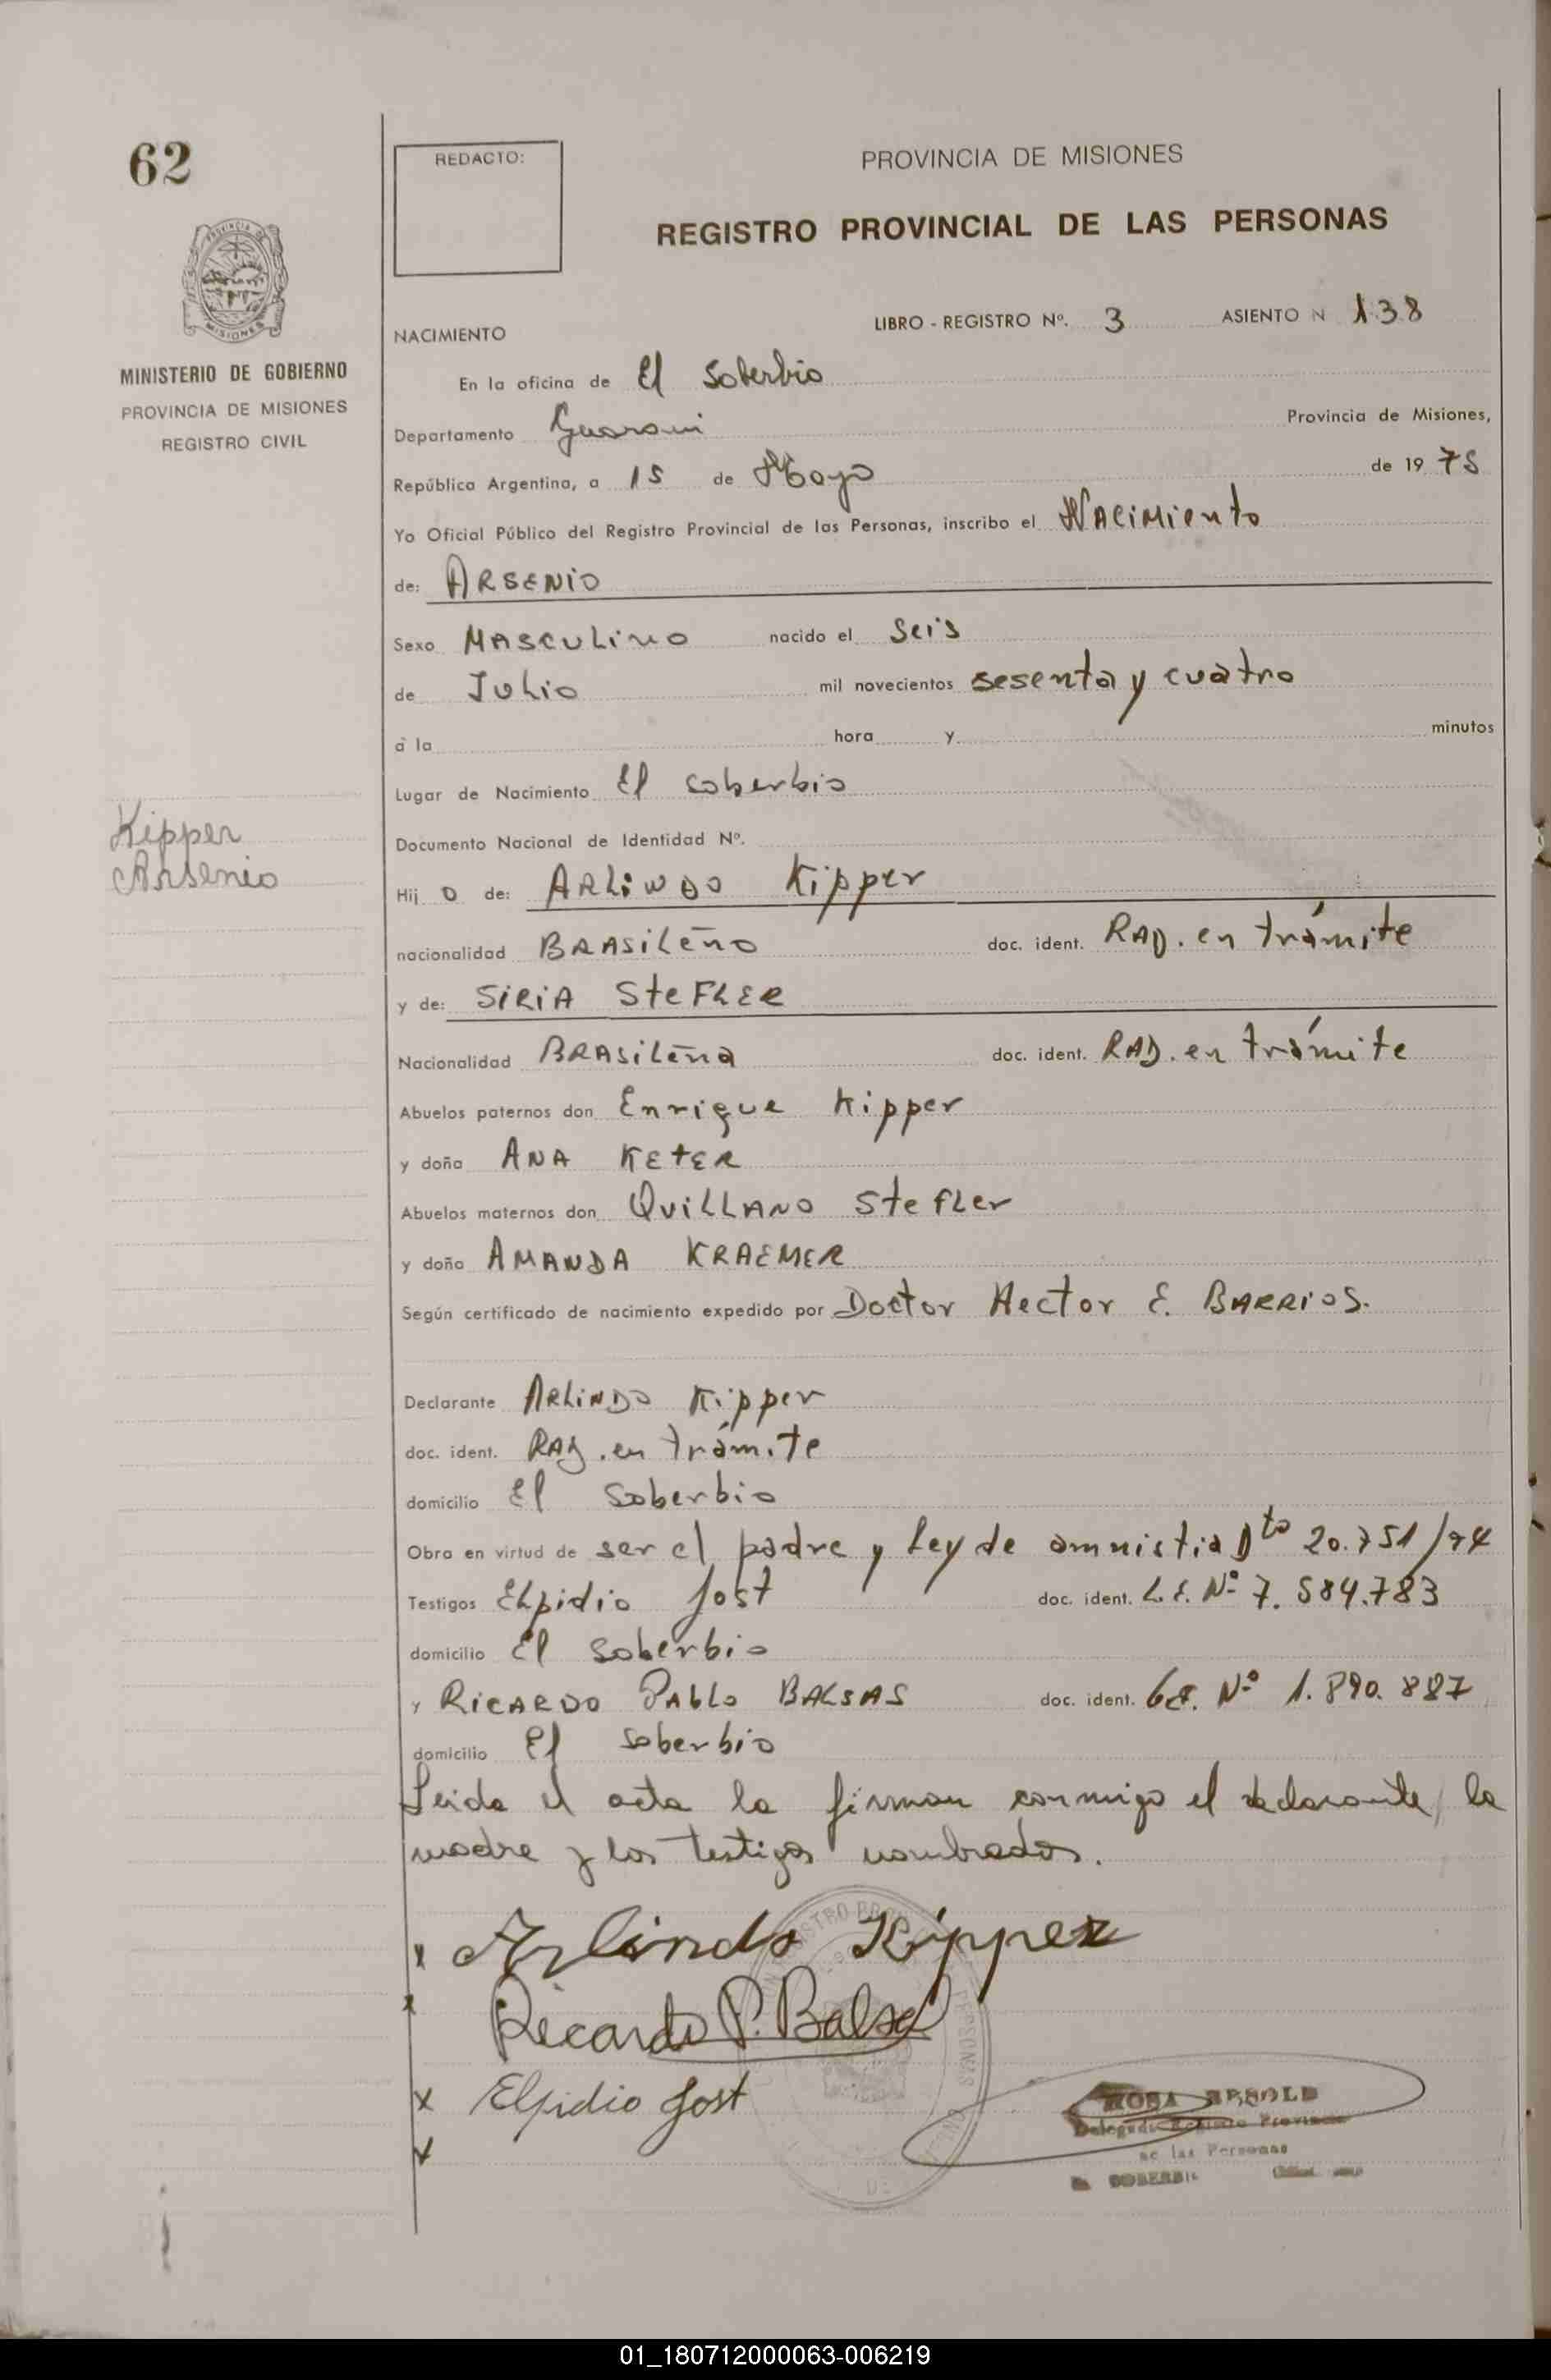 62
REDACTO:
PROVINCIA DE MISIONES
REGISTRO PROVINCIAL DE LAS PERSONAS
MISIONES
MINISTERIO DE GOBIERNO
PROVINCIA DE MISIONES
REGISTRO CIVIL
NACIMIENTO
LIBRO - REGISTRO Nº. 3 ASIENTO N 138
En la oficina de El Soberbio
Departamento Guarani Provincia de Misiones,
República Argentina, a 15 de Mayo de 1975
Yo Oficial Público del Registro Provincial de las Personas, inscribo el Nacimiento
de: ARSENIO
Sexo MASCULINO nacido el Seis
de Julio mil novecientos sesenta y cuatro
a la hora y minutos
Lugar de Nacimiento El soberbio
Documento Nacional de Identidad Nº.
Kipper
Arsenio
Hij o de: ARLINDO Kipper
nacionalidad BRASILEÑO doc. ident. RAD. en trámite
y de: SIRIA STEFLER
Nacionalidad BRASILEÑA doc. ident. RAD. en trámite
Abuelos paternos don Enrique Kipper
y doña ANA KETER
Abuelos maternos don QUILLANO Stefler
y doña AMANDA KRAEMER
Según certificado de nacimiento expedido por Doctor Hector E. BARRIOS.
Declarante ARLINDO Kipper
doc. ident. RAD. en trámite
domicilio El Soberbio
Obra en virtud de ser el padre y Ley de amnistia Dto 20.751/74
Testigos Elpidio Jost doc. ident. L.E. Nº 7.584.783
domicilio El Soberbio
y RICARDO PABLO BALSAS doc. ident. Nº 1.890.887
domicilio El Soberbio
Leida el acta la firman conmigo el declarante, la
madre y los testigos nombrados.
x Arlindo Kipper
x Ricardo P. Balsa
x Elpidio Jost
x
Delegada Registro Provincial
de las Personas
SOBERBIO
01_180712000063-006219